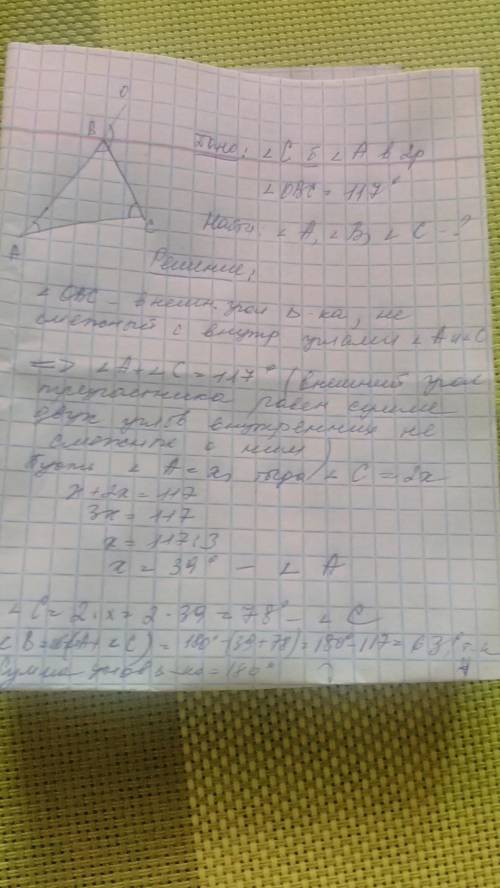 O
B
C
A
Дано: ∠C б ∠A в 2р
∠OBC = 117°
Найти ∠A, ∠B, ∠C - ?
Решение:
∠OBC - внешн. угол Δ-ка, не
смежный с внутр углами ∠A и ∠C
=> ∠A + ∠C = 117° (внешний угол
треугольника равен сумме
двух углов внутренних не
смежных с ним)
Пусть ∠A = x, тогда ∠C = 2x
x + 2x = 117
3x = 117
x = 117:3
x = 39° - ∠A
∠C = 2·x = 2·39 = 78° - ∠C
∠B = (∠A + ∠C) = 180° - (39 + 78) = 180° - 117 = 63° (т.к
Сумма углов Δ-ка = 180°)